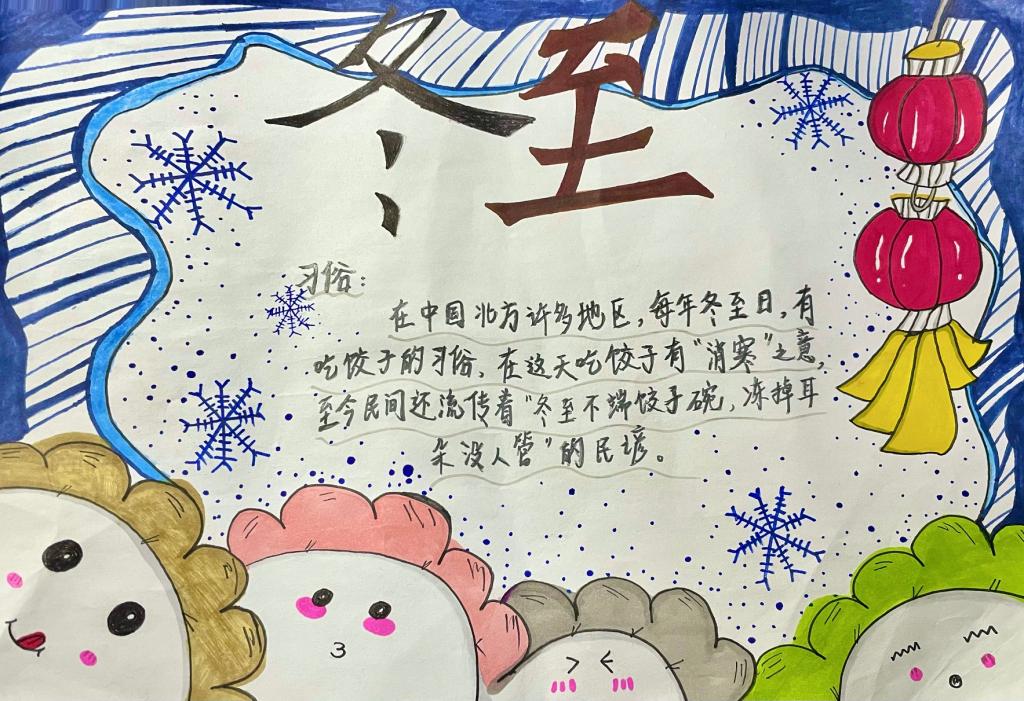 冬至
习俗：
在中国北方许多地区，每年冬至日，有
吃饺子的习俗，在这天吃饺子有“消寒”之意，
至今民间还流传着“冬至不端饺子碗，冻掉耳
朵没人管”的民谚。